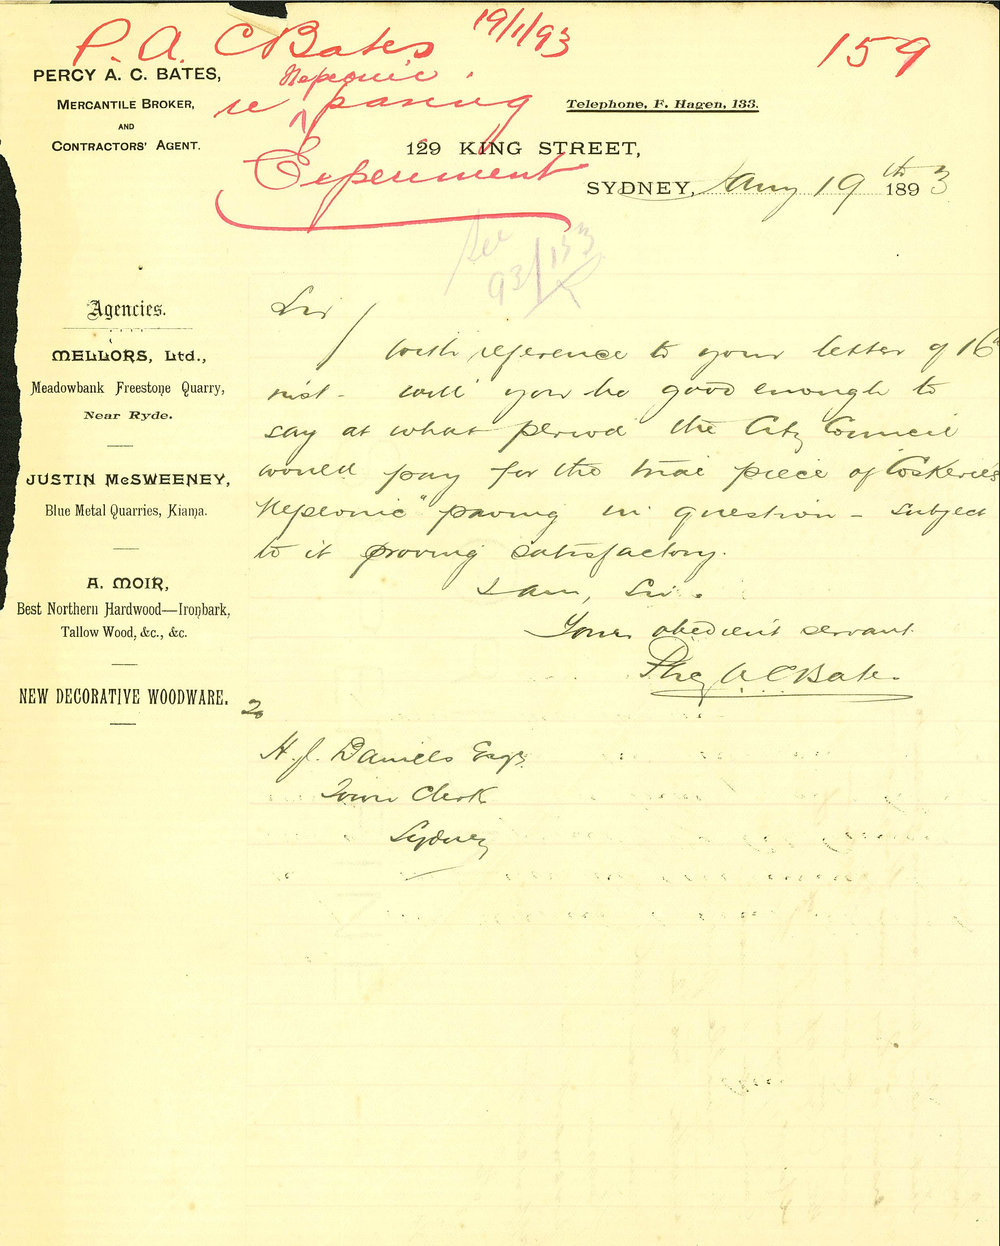 P. A. C Bates 19/1/93 159
Nepeonic
re paving
Experiment
PERCY A. C. BATES,
MERCANTILE BROKER,
AND
CONTRACTORS' AGENT.
Telephone, F. Hagen, 133.
129 KING STREET,
SYDNEY, Jany 19th 1893
See
93/133
Agencies.
MELLORS, Ltd.,
Meadowbank Freestone Quarry,
Near Ryde.
JUSTIN McSWEENEY,
Blue Metal Quarries, Kiama.
A. MOIR,
Best Northern Hardwood—Ironbark,
Tallow Wood, &c., &c.
NEW DECORATIVE WOODWARE.
Sir /
With reference to your letter of 16th
inst - will you be good enough to
say at what period the City Council
would pay for the trial piece of Coskerie's
"Nepeonic" paving in question - subject
to it proving satisfactory.
I am, Sir.
Your obedient servant
Percy A. C Bates.
To
H. J. Daniels Esqr.
Town Clerk
Sydney